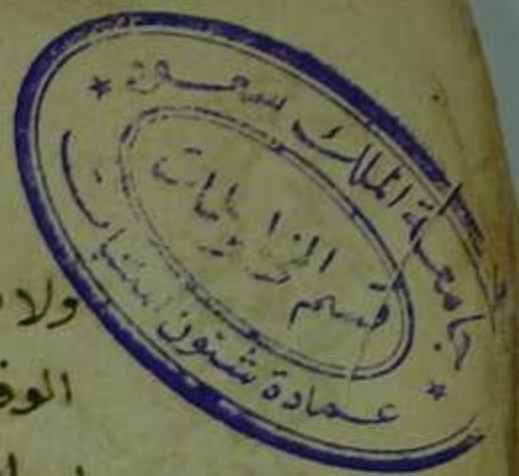 جامعة الملك سعود
قسم المخطوطات
عمادة شئون المكتبات
ولا
الوف